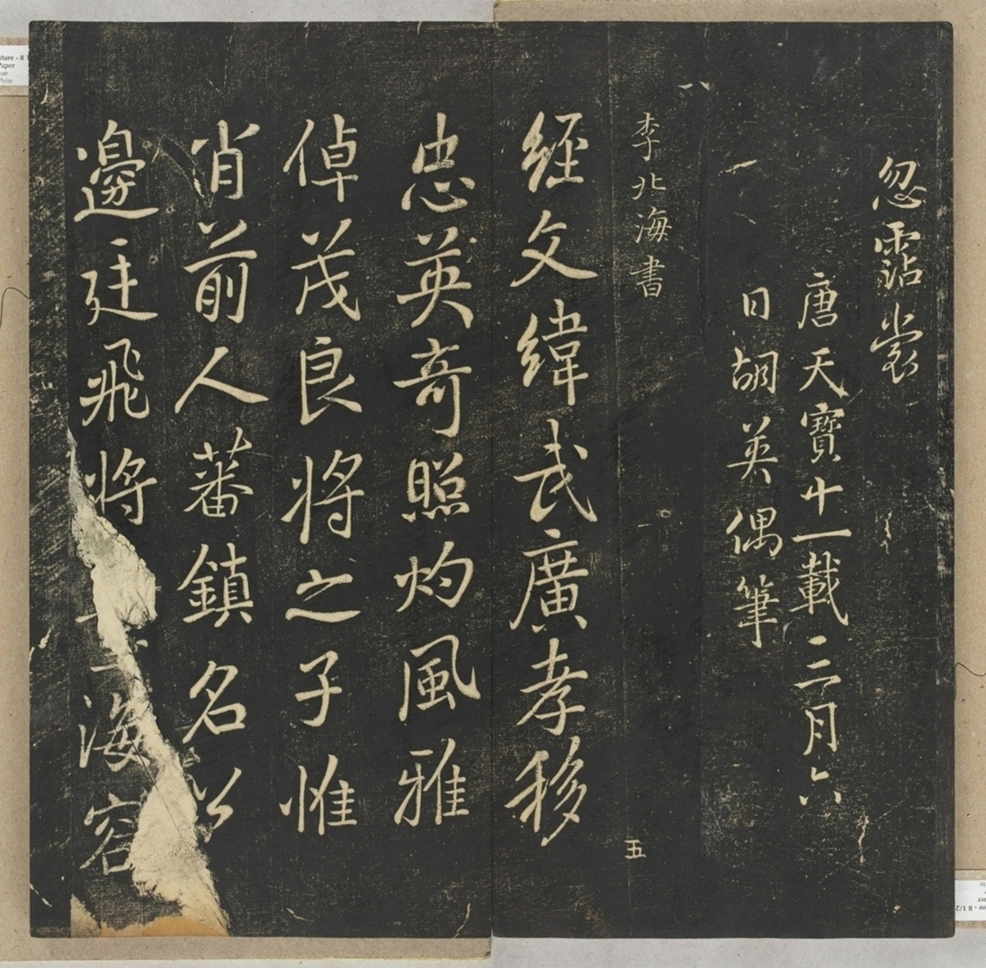 忽霑裳
唐天寶十一載三月六
日胡英偶筆
李北海書
五
經文緯武廣孝移
忠英奇照灼風雅
倬茂良將之子惟
肖前人蕃鎮名公
邊廷飛將海容